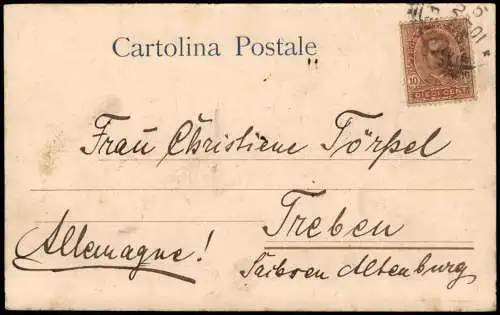 Cartolina Postale
10
DIECI CENT.
Frau Christiene Törpel
Treben
Allemagne!
Sachsen Altenburg